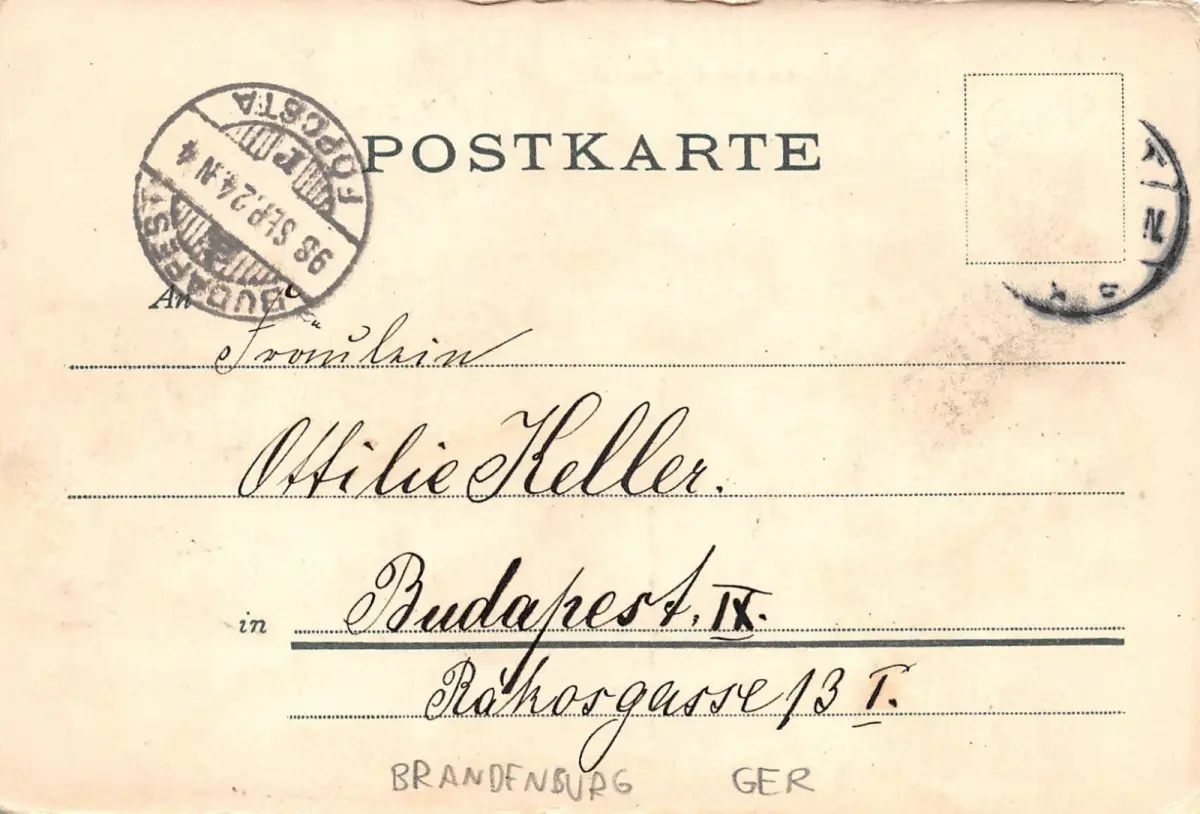 POSTKARTE
BUDAPEST
98 SEP. 24. N 4
FŐPOSTA
An
Fräulein
Ottilie Keller.
in Budapest, IX.
Rákosgasse 13 I.
BRANDENBURG GER